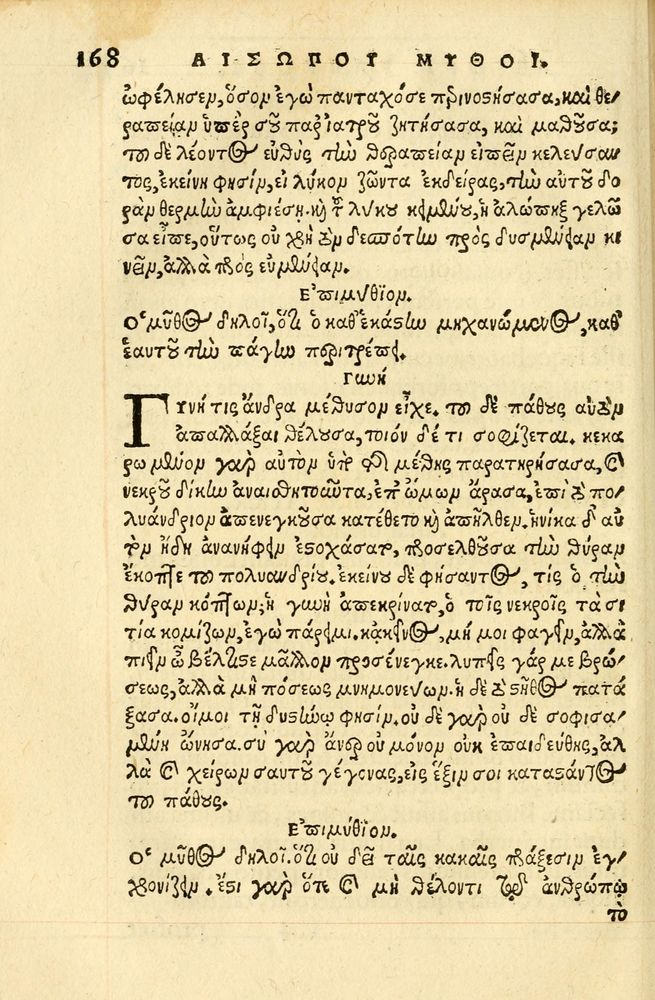 168 ΑΙΣΩΠΟΥ ΜΥΘΟΙ.
ὠφέλησεν, ὅσον ἐγὼ πανταχόσε περινοστήσασα, καὶ θε/
ραπείαν ὑπὲρ σοῦ παρ' ἰατροῦ ζητήσασα, καὶ μαθοῦσα;
τοῦ δὲ λέοντος εὐθὺς τὴν θεραπείαν εἰπεῖν κελεύσαν/
τος, ἐκείνη φησίν, εἰ λύκον ζῶντα ἐκδείρας, τὴν αὐτοῦ δο
ρὰν θερμὴν ἀμφιέσῃ. καὶ τοῦ λύκου κειμένου, ἡ ἀλώπηξ γελῶ
σα εἶπε, οὕτως οὐ χρὴ τὸν δεσπότην πρὸς δυσμένειαν κι
νεῖν, ἀλλὰ πρὸς εὐμένειαν.
Ἐπιμύθιον.
Ὁ μῦθος δηλοῖ, ὅτι ὁ καθ' ἑκάστην μηχανώμενος, καθ'
ἑαυτοῦ τὴν πάγην περιτρέπει.
Γυνή
ΓΥνή τις ἄνδρα μέθυσον εἶχε. τοῦ δὲ πάθους αὐτὸν
ἀπαλλάξαι θέλουσα, τοιόν δέ τι σοφίζεται. κεκα
ρωμένον γὰρ αὐτὸν ὑπὸ τῆς μέθης παρατηρήσασα, καὶ
νεκροῦ δίκην ἀναισθητοῦντα, ἐπ' ὤμων ἄρασα, ἐπὶ τὸ πο/
λυάνδριον ἀπενεγκοῦσα κατέθετο καὶ ἀπῆλθεν. ἡνίκα δ' αὐ
τὸν ἤδη ἀνανήφειν ἐστοχάσατο, προσελθοῦσα τὴν θύραν
ἔκοπτε τοῦ πολυανδρίου. ἐκείνου δὲ φήσαντος, τίς ὁ τὴν
θύραν κόπτων; ἡ γυνὴ ἀπεκρίνατο, ὁ τοῖς νεκροῖς τὰ σι
τία κομίζων, ἐγὼ πάρειμι. κἀκεῖνος, μή μοι φαγεῖν, ἀλλὰ
πιεῖν ὦ βέλτιστε μᾶλλον προσένεγκε. λυπεῖς γάρ με βρώ/
σεως, ἀλλὰ μὴ πόσεως μνημονεύων. ἡ δὲ τὸ στῆθος πατά
ξασα. οἴμοι τῇ δυστήνῳ φησίν. οὐδὲ γὰρ οὐδὲ σοφισα/
μένη ὤνησα. σὺ γὰρ ἄνερ οὐ μόνον οὐκ ἐπαιδεύθης, ἀλ
λὰ καὶ χείρων σαυτοῦ γέγονας, εἰς ἕξιν σοι καταστάντος
τοῦ πάθους.
Ἐπιμύθιον.
Ὁ μῦθος δηλοῖ. ὅτι οὐ δεῖ ταῖς κακαῖς πράξεσιν ἐγ/
χρονίζειν. ἔστι γὰρ ὅτε καὶ μὴ θέλοντι τῷ ἀνθρώπῳ
τὸ